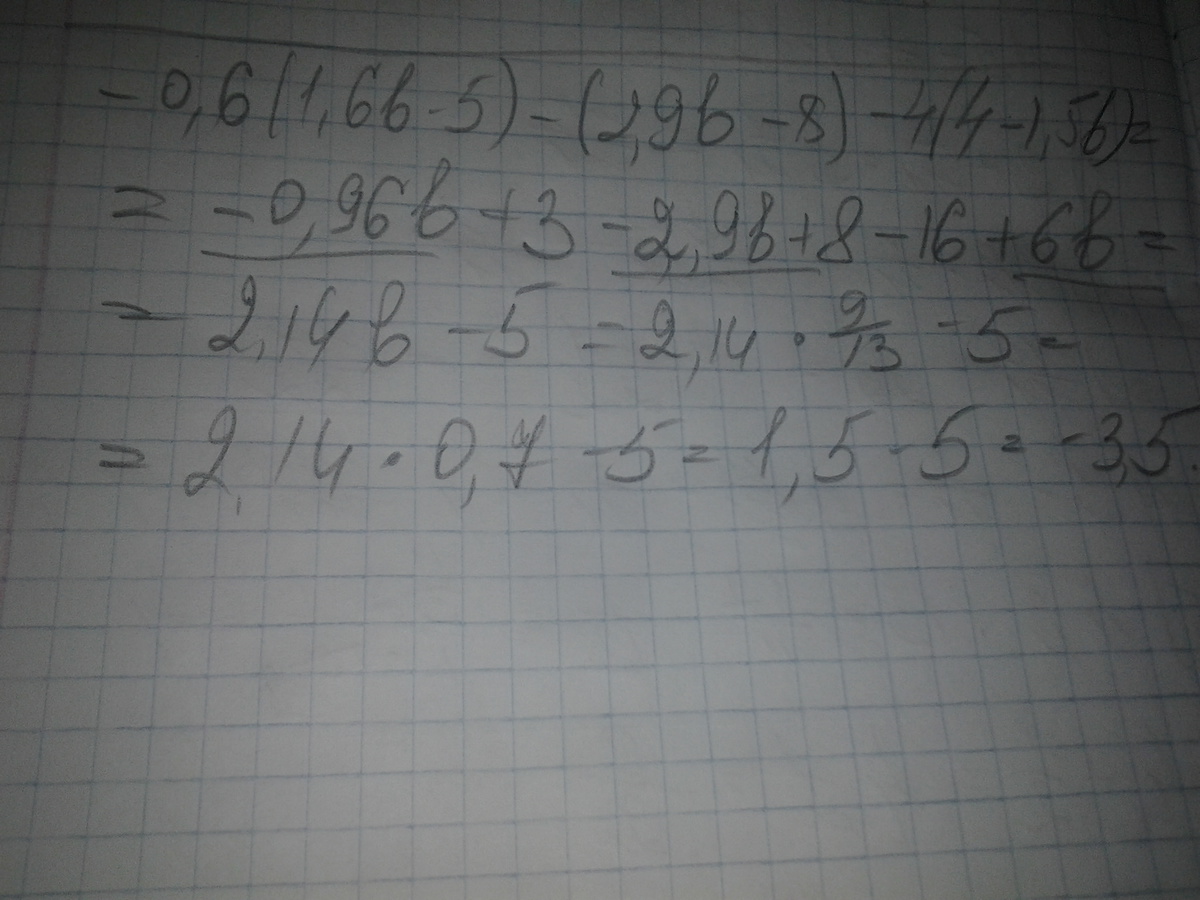 -0,6(1,6b-5)-(2,9b-8)-4(4-1,5b)=
= -0,96b+3-2,9b+8-16+6b=
= 2,14b-5=2,14·9/13-5=
= 2,14·0,7-5=1,5-5=-3,5.